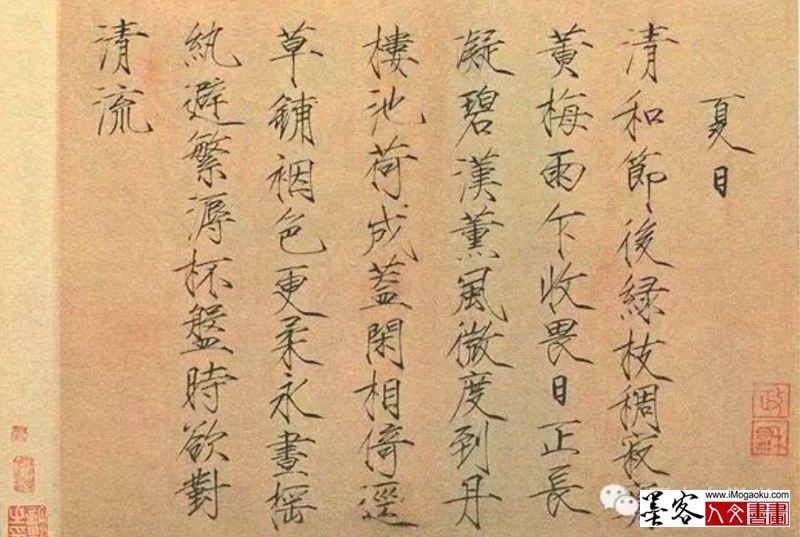 夏日
清和節後緑枝稠寂
黃梅雨乍收畏日正長
凝碧漢薫風微度到丹
樓池荷成蓋閑相倚逕
草鋪裀色更柔永晝搖
紈避繁溽杯盤時欲對
清流
政龢
墨客
www.iMogaoku.com
人文書畫